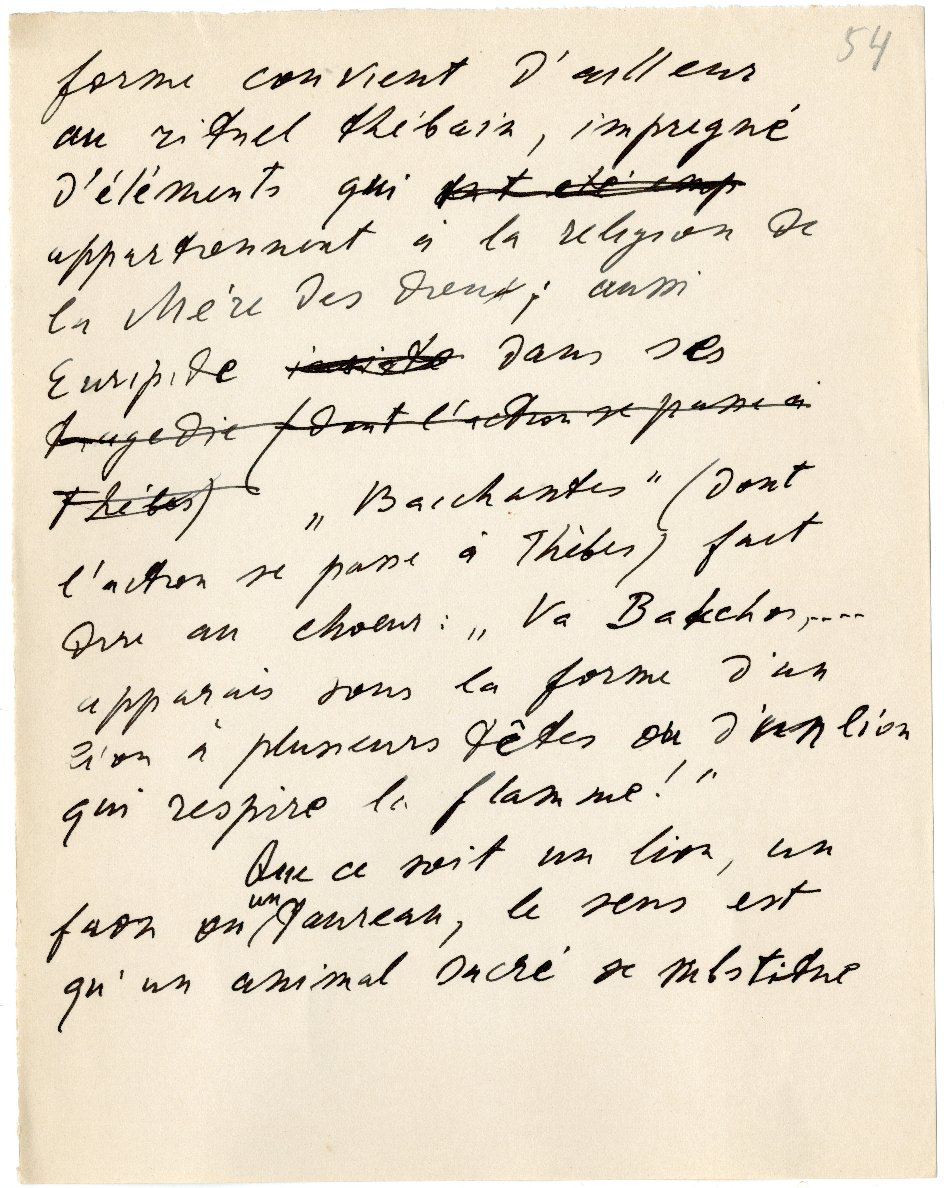 54
forme convient d'ailleur
au rituel thébain, impregné
d'éléments qui ont été emp
appartiennent à la religion de
la Mère des dieux; aussi
Euripide insiste dans ses
tragedie (dont l'action se passe à
Thèbes) „Bacchantes" (dont
l'action se passe à Thèbes) fait
dire au choeur: „Va Bakchos,....
apparais sous la forme d'un
lion à plusieurs têtes ou d'un lion
qui respire la flamme!"
Que ce soit un lion, un
faon ou un taureau, le sens est
qu'un animal sacré se substitue